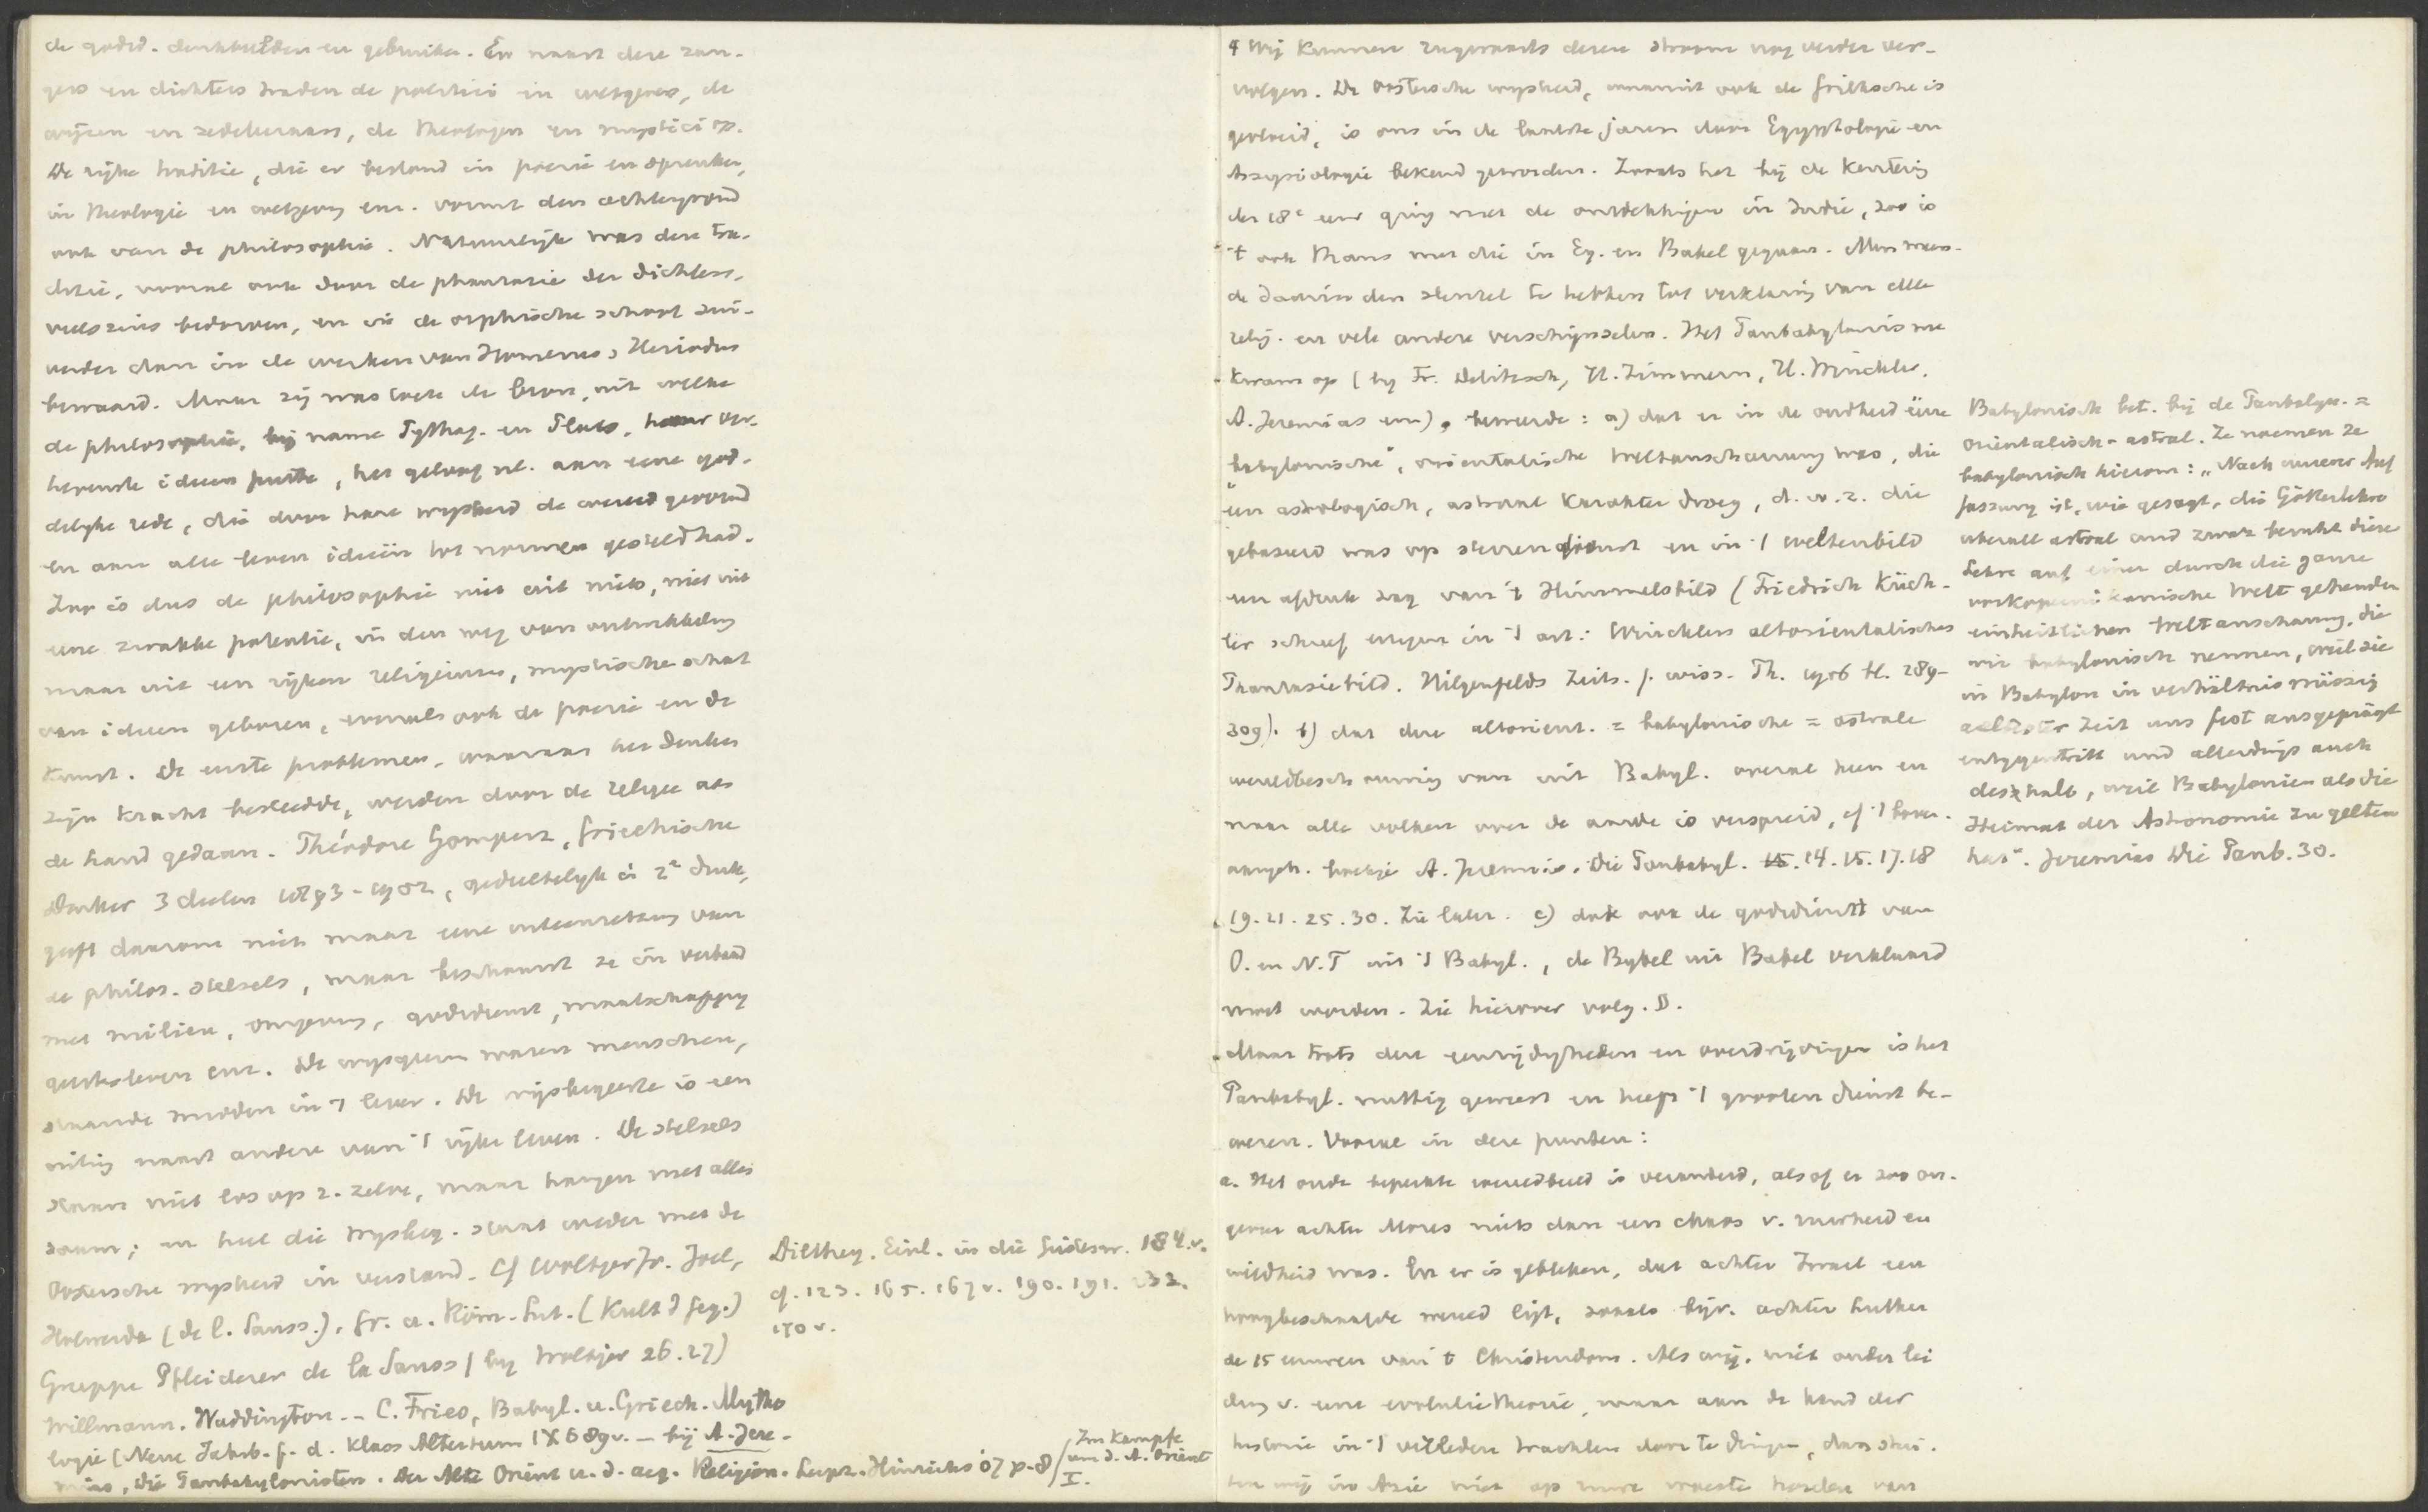 de godsd. denkbeelden en gebruiken. En naast deze zan-
gers en dichters traden de politici en wetgevers, de
wijzen en zedeleeraars, de theologen en mystici op.
De rijke traditie, die er bestond in poezie en spreuken,
in theologie en wetgeving enz. vormt den achtergrond
ook van de philosophie. Natuurlijk was deze tra-
ditie, vooral ook door de phantasie der dichters,
veelszins bedorven, en in de orphische school zui-
verder dan in de werken van Homerus, Hesiodus
bewaard. Maar zij was toch de bron, uit welke
de philosophie, bij name Pythag. en Plato, haar ver-
hevenste ideeen putte, het geloof nl. aan eene god-
delijke rede, die door hare wijsheid de wereld gevormd
en aan alle leven ideeën tot normen gesteld had.
Zoo is dus de philosophie niet uit niets, niet uit
eene zwakke potentie, in den weg van ontwikkeling
maar uit een rijken religieuzen, mystische schat
van ideeen geboren, evenals ook de poezie en de
kunst. De eerste problemen, waaraan het denken
zijn kracht besteedde, werden door de religie aan
de hand gedaan. Théodore Gomperz, Griechische
Denker 3 deelen 1893-1902, gedeeltelijk in 2e druk,
geeft daarom niet maar eene uiteenzetting van
de philos. stelsels, maar beschouwt ze in verband
met milieu, omgeving, godsdienst, maatschappij
geestesleven enz. De wijsgeeren waren menschen,
staande midden in 't leven. De wijsbegeerte is een
uiting naast andere van 't rijke leven. De stelsels
staan niet los op z. zelve, maar hangen met alles
saam; en heel die wijsbeg. staat weder met de
Oostersche wijsheid in verband. Cf Woltjer Jr. Joel,
Holwerda (de l. Sauss.), Gr. u. Röm. Lit. (Kult d Geg.)
Gruppe Pfleiderer de la Sauss (bij Woltjer 26.27)
Willmann. Waddington -- C. Fries, Babyl. u. Griech. Mytho
logie (Neue Jahrb. f. d. klass Altertum IX 689v. - bij A. Jere-
mias, Die Panbabylonisten. Der Alte Orient u. d. aeg. Religion. Leipz. Hinrichs 07 p. 8 /
Im Kampfe
um d. A. Orient
I.
Dilthey. Einl. in die Geistesw. 184.v.
cf. 123. 165. 167v. 190. 191. 232.
170v.
4 Wij kunnen rugwaarts dezen stroom nog verder ver-
volgen. De Oostersche wijsheid, waaruit ook de Grieksche is
gevloeid, is ons in de laatste jaren door Egyptologie en
Assyriologie bekend geworden. Zooals het bij de kentering
der 18e eeuw ging met de ontdekkingen in Indie, zoo is
't ook thans met die in Eg. en Babel gegaan. Men meen-
de daarin den sleutel te hebben tot verklaring van alle
relig. en vele andere verschijnselen. Het Panbabylonisme
kwam op (bij Fr. Delitzsch, H. Zimmern, H. Winckler,
A. Jeremias enz), beweerde: a) dat er in de oudheid ééne
„babylonische", orientalische Weltanschauung was, die
een astrologisch, astraal karakter droeg, d. w. z. die
gebaseerd was op sterrendienst en in 't weltenbild
een afdruk zag van 't Himmelsbild (Friedrich Küch-
ler schreef ertegen in 't art: Wincklers altorientalisches
Phantasiebild. Hilgenfelds Zeits. f. wiss. Th. 1906 bl. 289-
309). b) dat deze altorient. = babylonische = astrale
wereldbeschouwing van uit Babyl. overal heen en
naar alle volken over de aarde is verspreid, cf 't boven-
aangeh. boekje A. Jeremias, Die Panbabyl. 14. 15. 17. 18
19. 21. 25. 30. Zie later. c) dat ook de godsdienst van
O. en N.T uit 't Babyl., de Bybel uit Babel verklaard
moet worden. Zie hierover volg. §.
Maar trots deze eenzijdigheden en overdrijvingen is het
Panbabyl. nuttig geweest en heeft 't grooten dienst be-
wezen. Vooral in deze punten:
a. Het oude beperkte wereldbeeld is veranderd, alsof er zoo on-
geveer achter Mozes niets dan een chaos v. ruwheid en
wildheid was. En er is gebleken, dat achter Israel een
hoogbeschaafde wereld ligt, zooals bijv. achter Luther
de 15 eeuwen van 't Christendom. Als wij, niet onder lei
ding v. eene evolutietheorie, maar aan de hand der
historie in 't verleden trachten door te dringen, dan stui-
ten wij in Azie niet op ruwe woeste horden van
Babylonisch bet. bij de Panbabyl. =
orientalisch-astral. Ze noemen ze
babylonisch hierom: „Nach unserer Auf
fassung ist, wie gesagt, die Götterlehre
überall astral und zwar beruht diese
Lehre auf einer durch die ganze
vorkopernikanische Welt gehenden
einheitlichen Weltanschauung, die
wir babylonisch nennen, weil sie
in Babylon in verhältnismässig
ältester Zeit uns fest ausgeprägt
entgegentritt und allerdings auch
deshalb, weil Babylonien als die
Heimat der Astronomie zu gelten
hat". Jeremias Die Panb. 30.